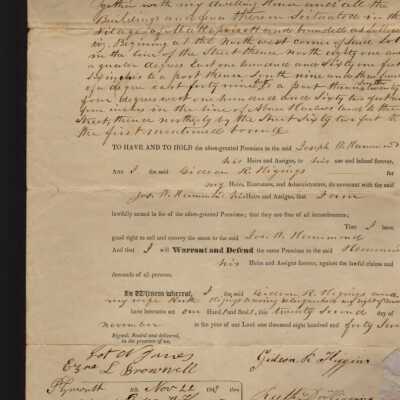 gether with my dwelling House and all the
Buildings and Land therein Situated in the
Village of Mattapoisett and bounded as follows
viz. Begining at the North west corner of said Lot
in the line of the Street thence North eighty one and
a quarter degrees East one hundred and Sixty one feet
to a post thence South nine and three fourths
of a degree east forty nine feet to a post thence South
four degrees west one hundred and Sixty two feet and
inches in the line of Land to the
Street, thence northerly by the Street Sixty two feet to
the first mentioned bound
TO HAVE AND TO HOLD the afore-granted Premises to the said Joseph W. Hammond
his Heirs and Assigns, to his use and behoof forever,
And I the said Gideon R. Higgins for
my Heirs, Executors, and Administrators, do covenant with the said
Jos. W. Hammond his Heirs and Assigns, that I am
lawfully seized in fee of the afore-granted Premises; that they are free of all incumbrances;
That I have
good right to sell and convey the same to the said Jos. W. Hammond
And that I will Warrant and Defend the same Premises to the said Hammond
his Heirs and Assigns forever, against the lawful claims and
demands of all persons.
In Witness whereof, I the said Gideon R. Higgins and
my wife Ruth Higgins having relinquished all right of Dower
have hereunto set our Hand and Seal this twenty second day of
November in the year of our Lord one thousand eight hundred and forty
Signed, Sealed and delivered,
in the presence of us,
Ezra L Brownell Gideon R Higgins
Plymouth ss. Nov 22 184
Ruth D Higgins